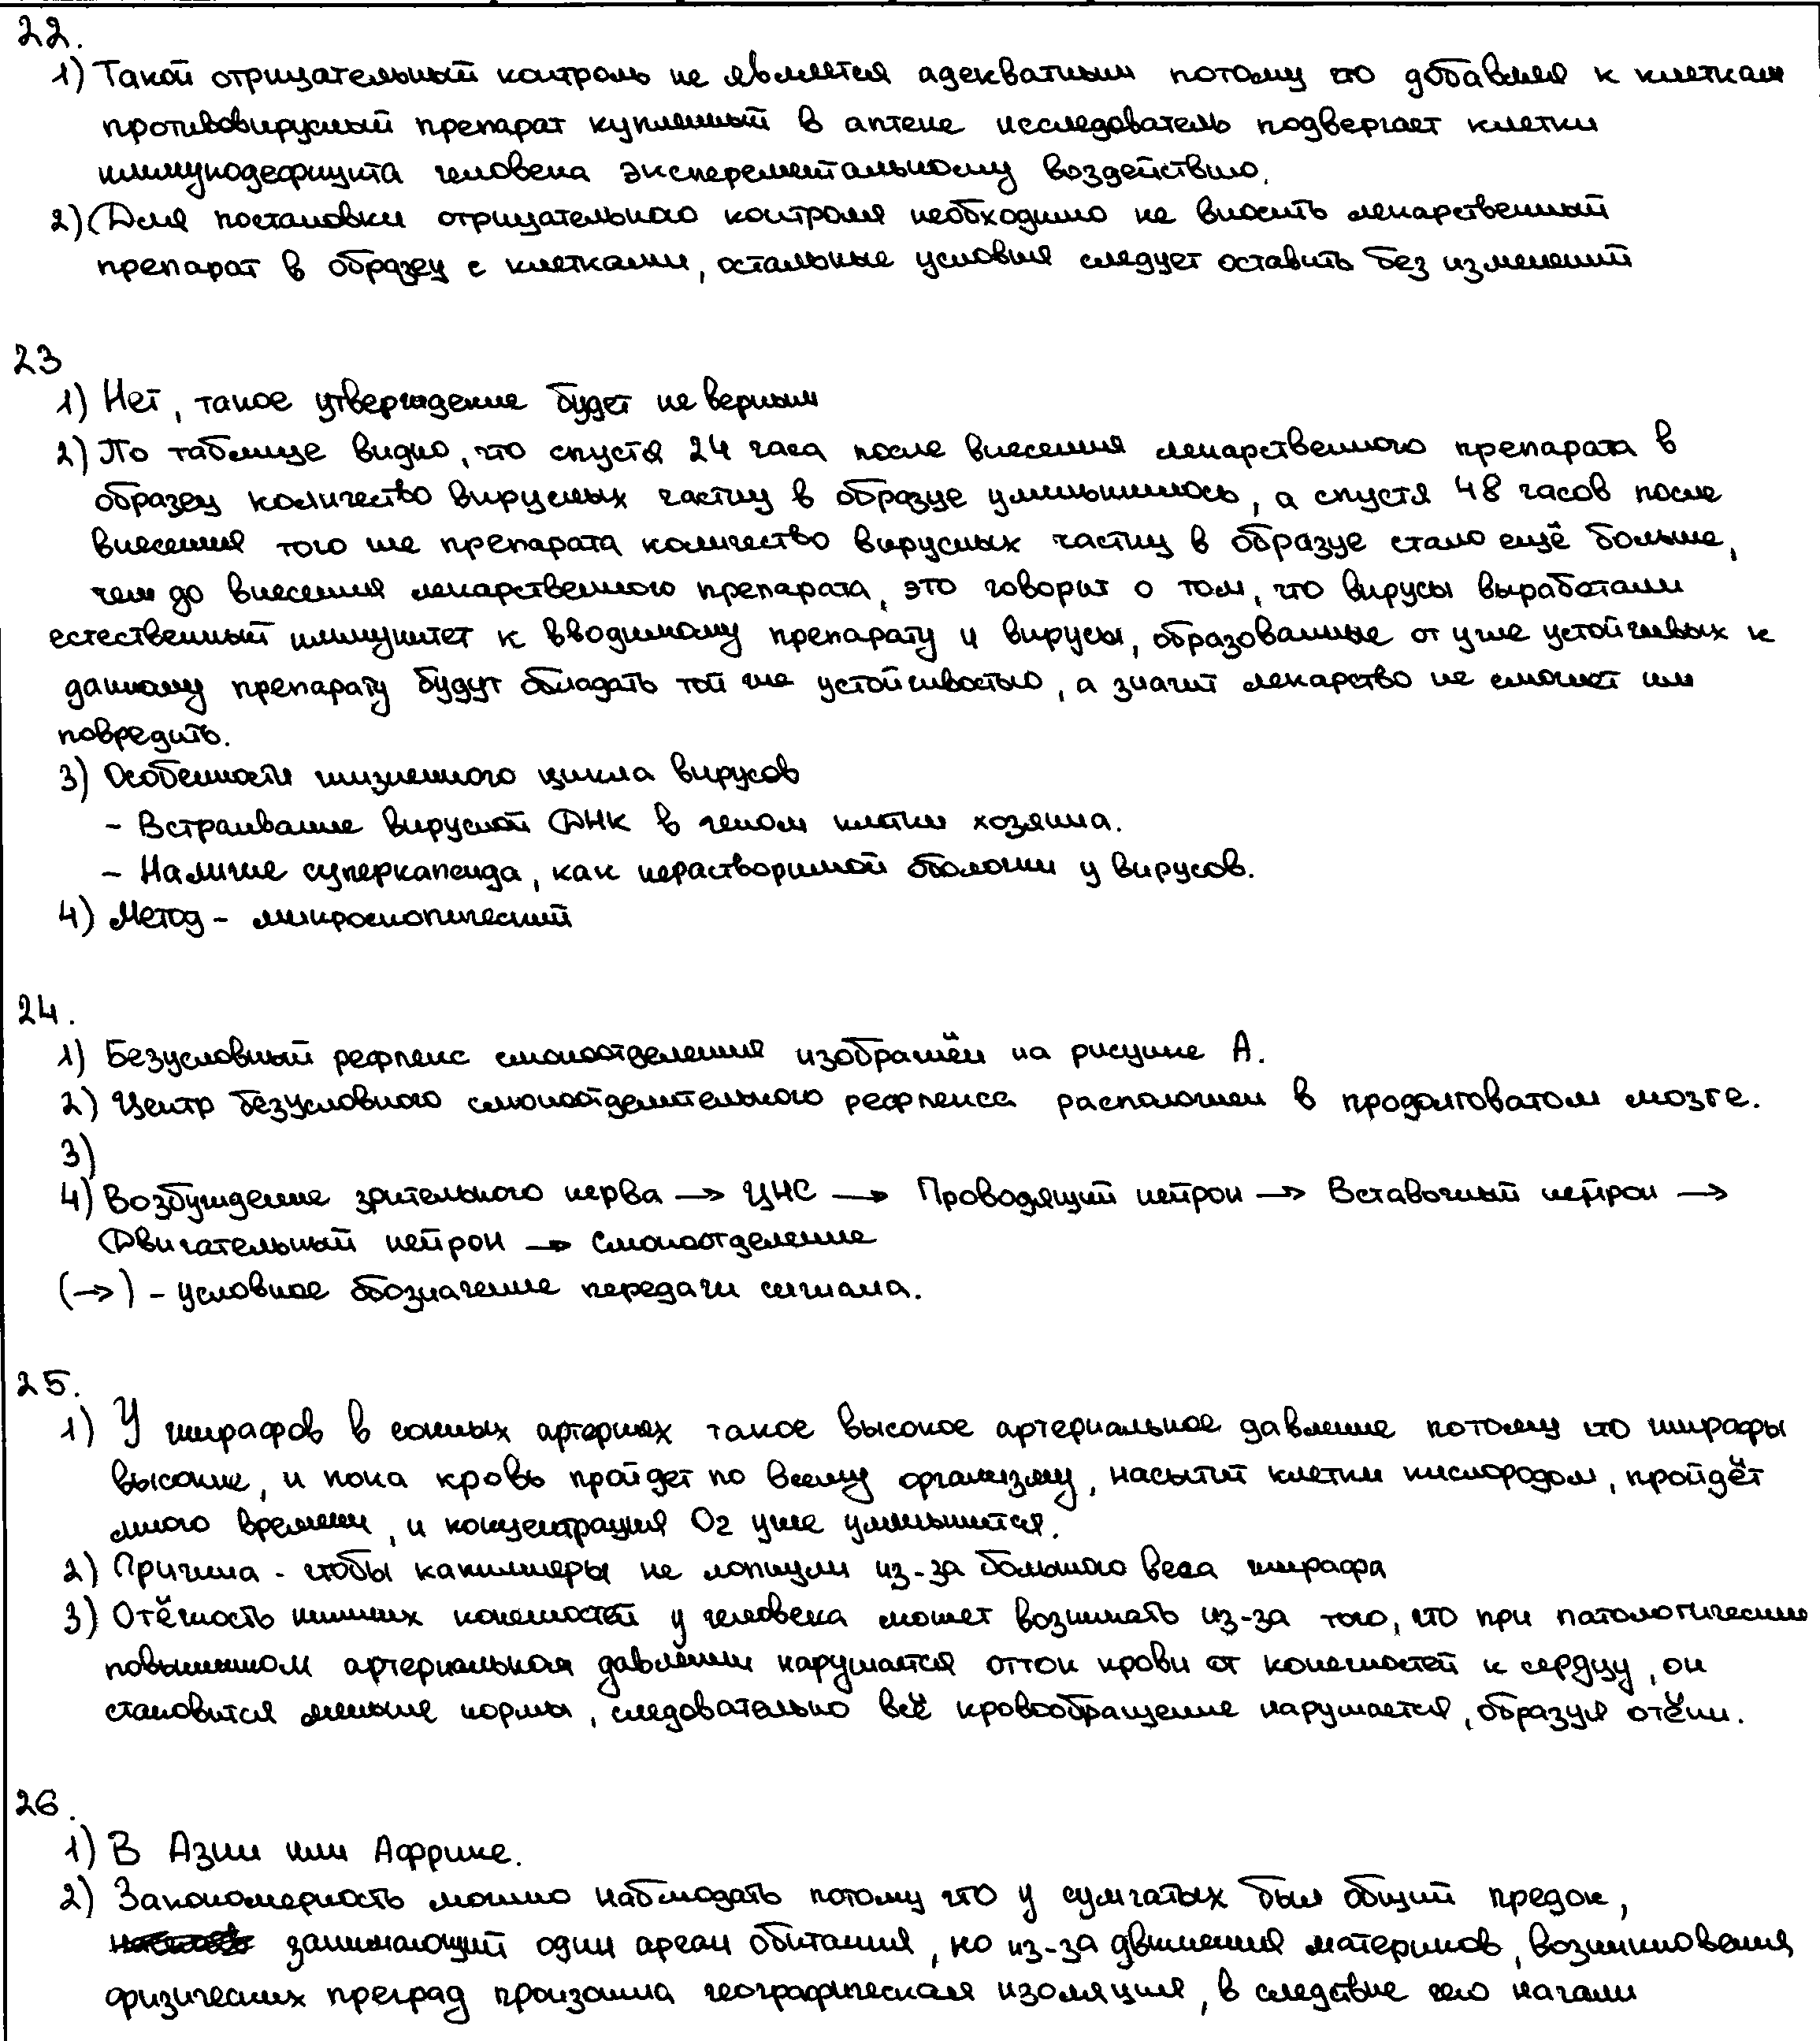 22.
1) Такой отрицательный контроль не является адекватным потому что добавляя к клеткам
противовирусный препарат купленный в аптеке исследователь подвергает клетки
иммунодефицита человека эксперементальному воздействию.
2) Для постановки отрицательного контроля необходимо не вносить лекарственный
препарат в образец с клетками, остальные условия следует оставить без изменений
23
1) Нет, такое утверждение будет не верным
2) По таблице видно, что спустя 24 часа после внесения лекарственного препарата в
образец количество вирусных частиц в образце уменьшилось, а спустя 48 часов после
внесения того же препарата количество вирусных частиц в образце стало ещё больше,
чем до внесения лекарственного препарата, это говорит о том, что вирусы выработали
естественный иммунитет к вводимому препарату и вирусы, образованные от уже устойчивых к
данному препарату будут обладать той же устойчивостью, а значит лекарство не сможет им
повредить.
3) Особенности жизненного цикла вирусов
- Встраивание вирусной ДНК в геном клетки хозяина.
- Наличие суперкапсида, как нерастворимой оболочки у вирусов.
4) Метод - микроскопический
24.
1) Безусловный рефлекс слюноотделения изображён на рисунке А.
2) Центр безусловного слюноотделительного рефлекса расположен в продолговатом мозге.
3)
4) Возбуждение зрительного нерва → ЦНС → Проводящий нейрон → Вставочный нейрон →
Двигательный нейрон → Слюноотделение
(→) - условное обозначение передачи сигнала.
25.
1) У жирафов в сонных артериях такое высокое артериальное давление потому что жирафы
высокие, и пока кровь пройдет по всему организму, насытит клетки кислородом, пройдёт
много времени, и концентрация O2 уже уменьшится.
2) Причина - чтобы капилляры не лопнули из-за большого веса жирафа
3) Отёчность нижних конечностей у человека может возникать из-за того, что при патологически
повышенном артериальном давлении нарушается отток крови от конечностей к сердцу, он
становится меньше нормы, следовательно всё кровообращение нарушается, образуя отёки.
26.
1) В Азии или Африке.
2) Закономерность можно наблюдать потому что у сумчатых был общий предок,
занимающий один ареал обитания, но из-за движения материков, возникновения
физических преград произошла географическая изоляция, в следствие чего начали